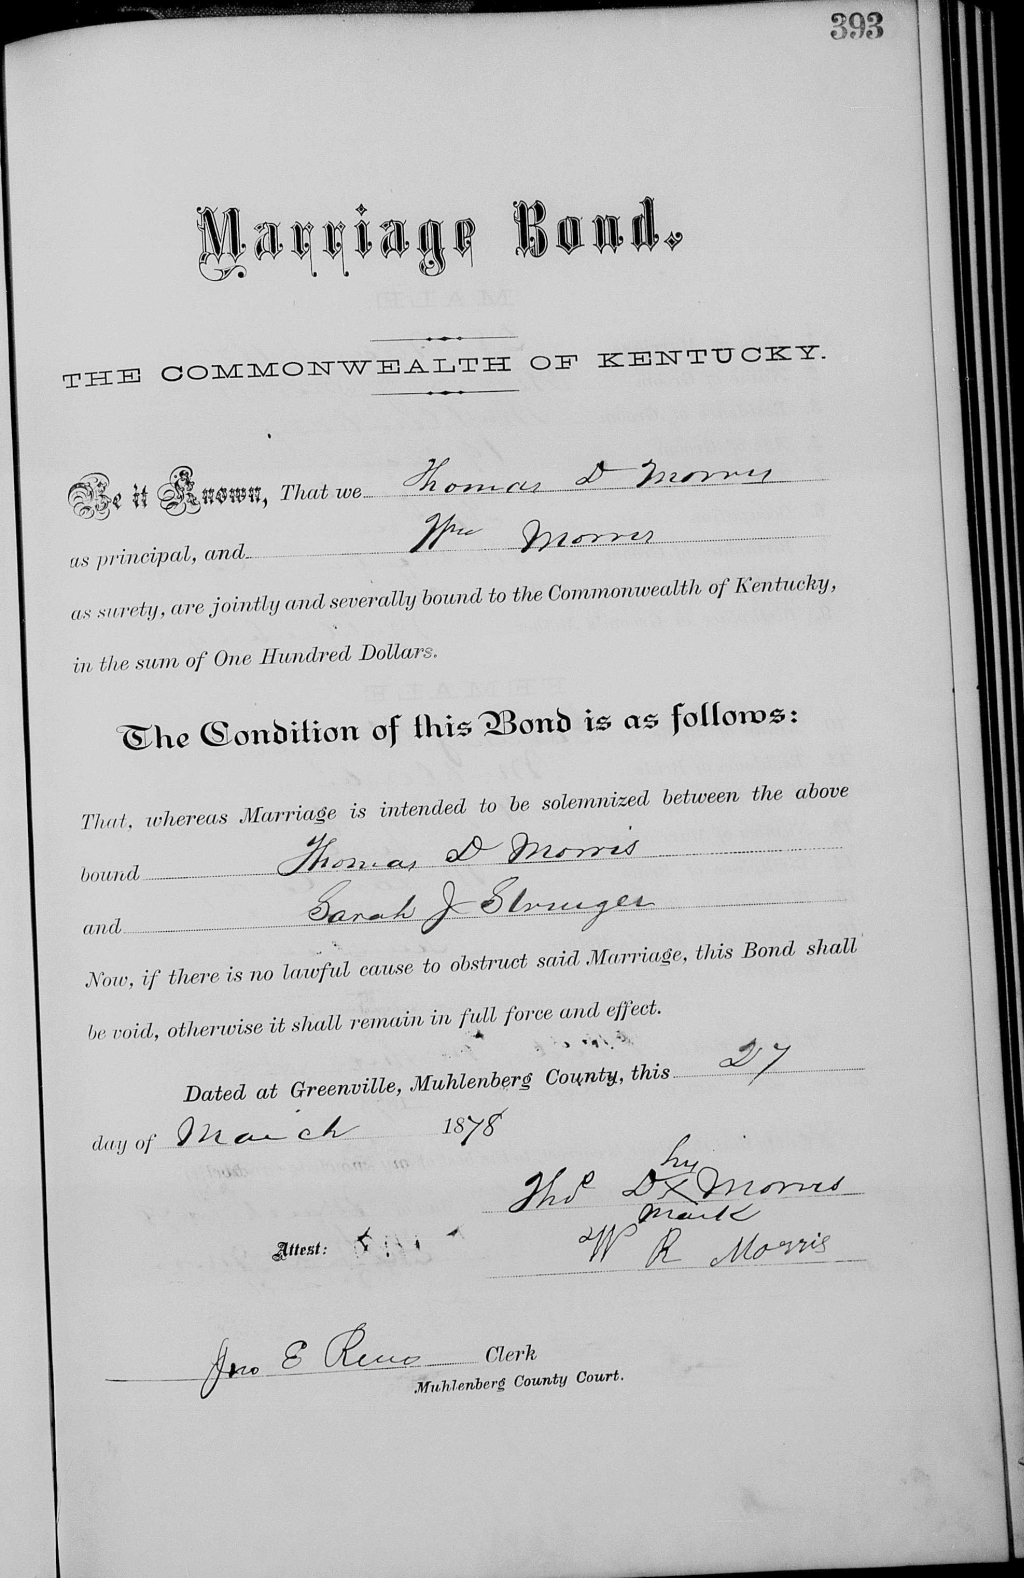 393
Marriage Bond.
THE COMMONWEALTH OF KENTUCKY.
Be it Known, That we Thomas D Morris
as principal, and Wm Morris
as surety, are jointly and severally bound to the Commonwealth of Kentucky,
in the sum of One Hundred Dollars.
The Condition of this Bond is as follows:
That, whereas Marriage is intended to be solemnized between the above
bound Thomas D Morris
and Sarah J
Now, if there is no lawful cause to obstruct said Marriage, this Bond shall
be void, otherwise it shall remain in full force and effect.
Dated at Greenville, Muhlenberg County, this 27
day of March 1878
his
Thos D X Morris
mark
Attest:
W R Morris
Jno E Reno Clerk
Muhlenberg County Court.